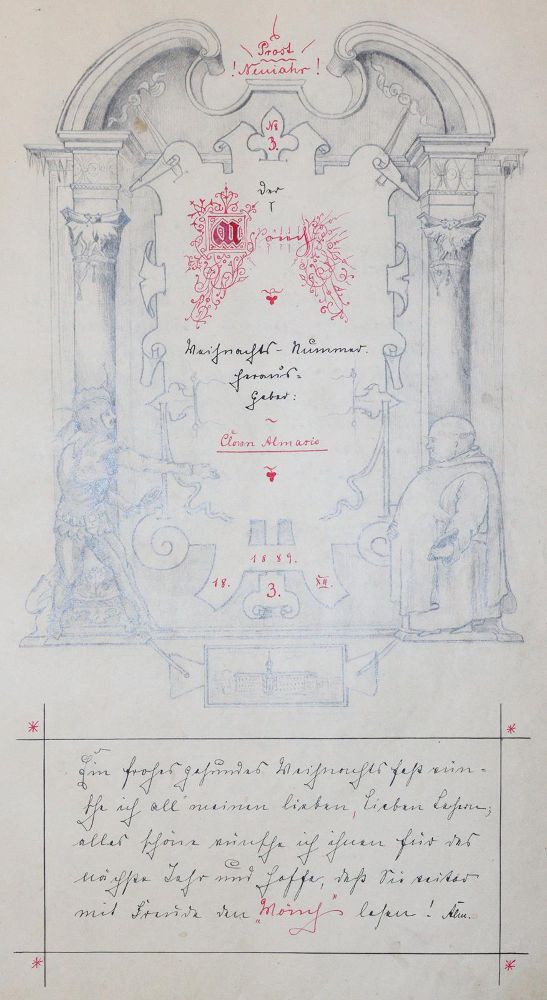 Prost
! Neujahr !
No
3.
Der
Mönch
Weihnachts-Nummer.
Heraus-
geber:
Clown Almario
1889.
18. XII.
3.
Ein frohes gesundes Weihnachtsfest wün-
sche ich all' meinen lieben, lieben Lesern;
alles schöne wünsche ich ihnen für das
nächste Jahr und hoffe, daß Sie weiter
mit Freude den „Mönch" lesen! Alm.